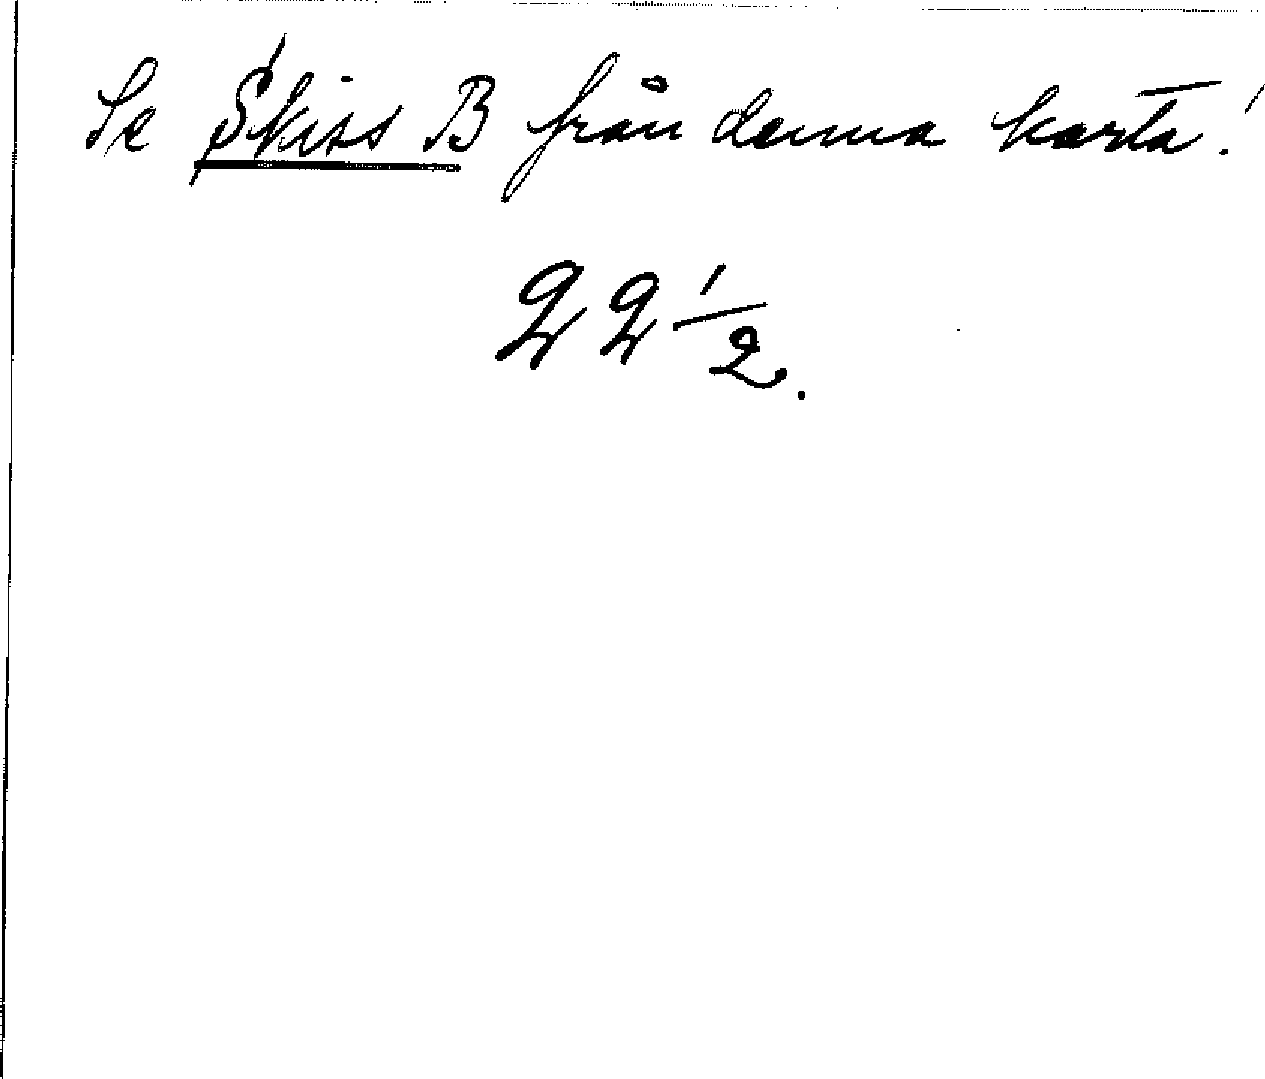 Se Skiss B från denna karta!
22 1/2.